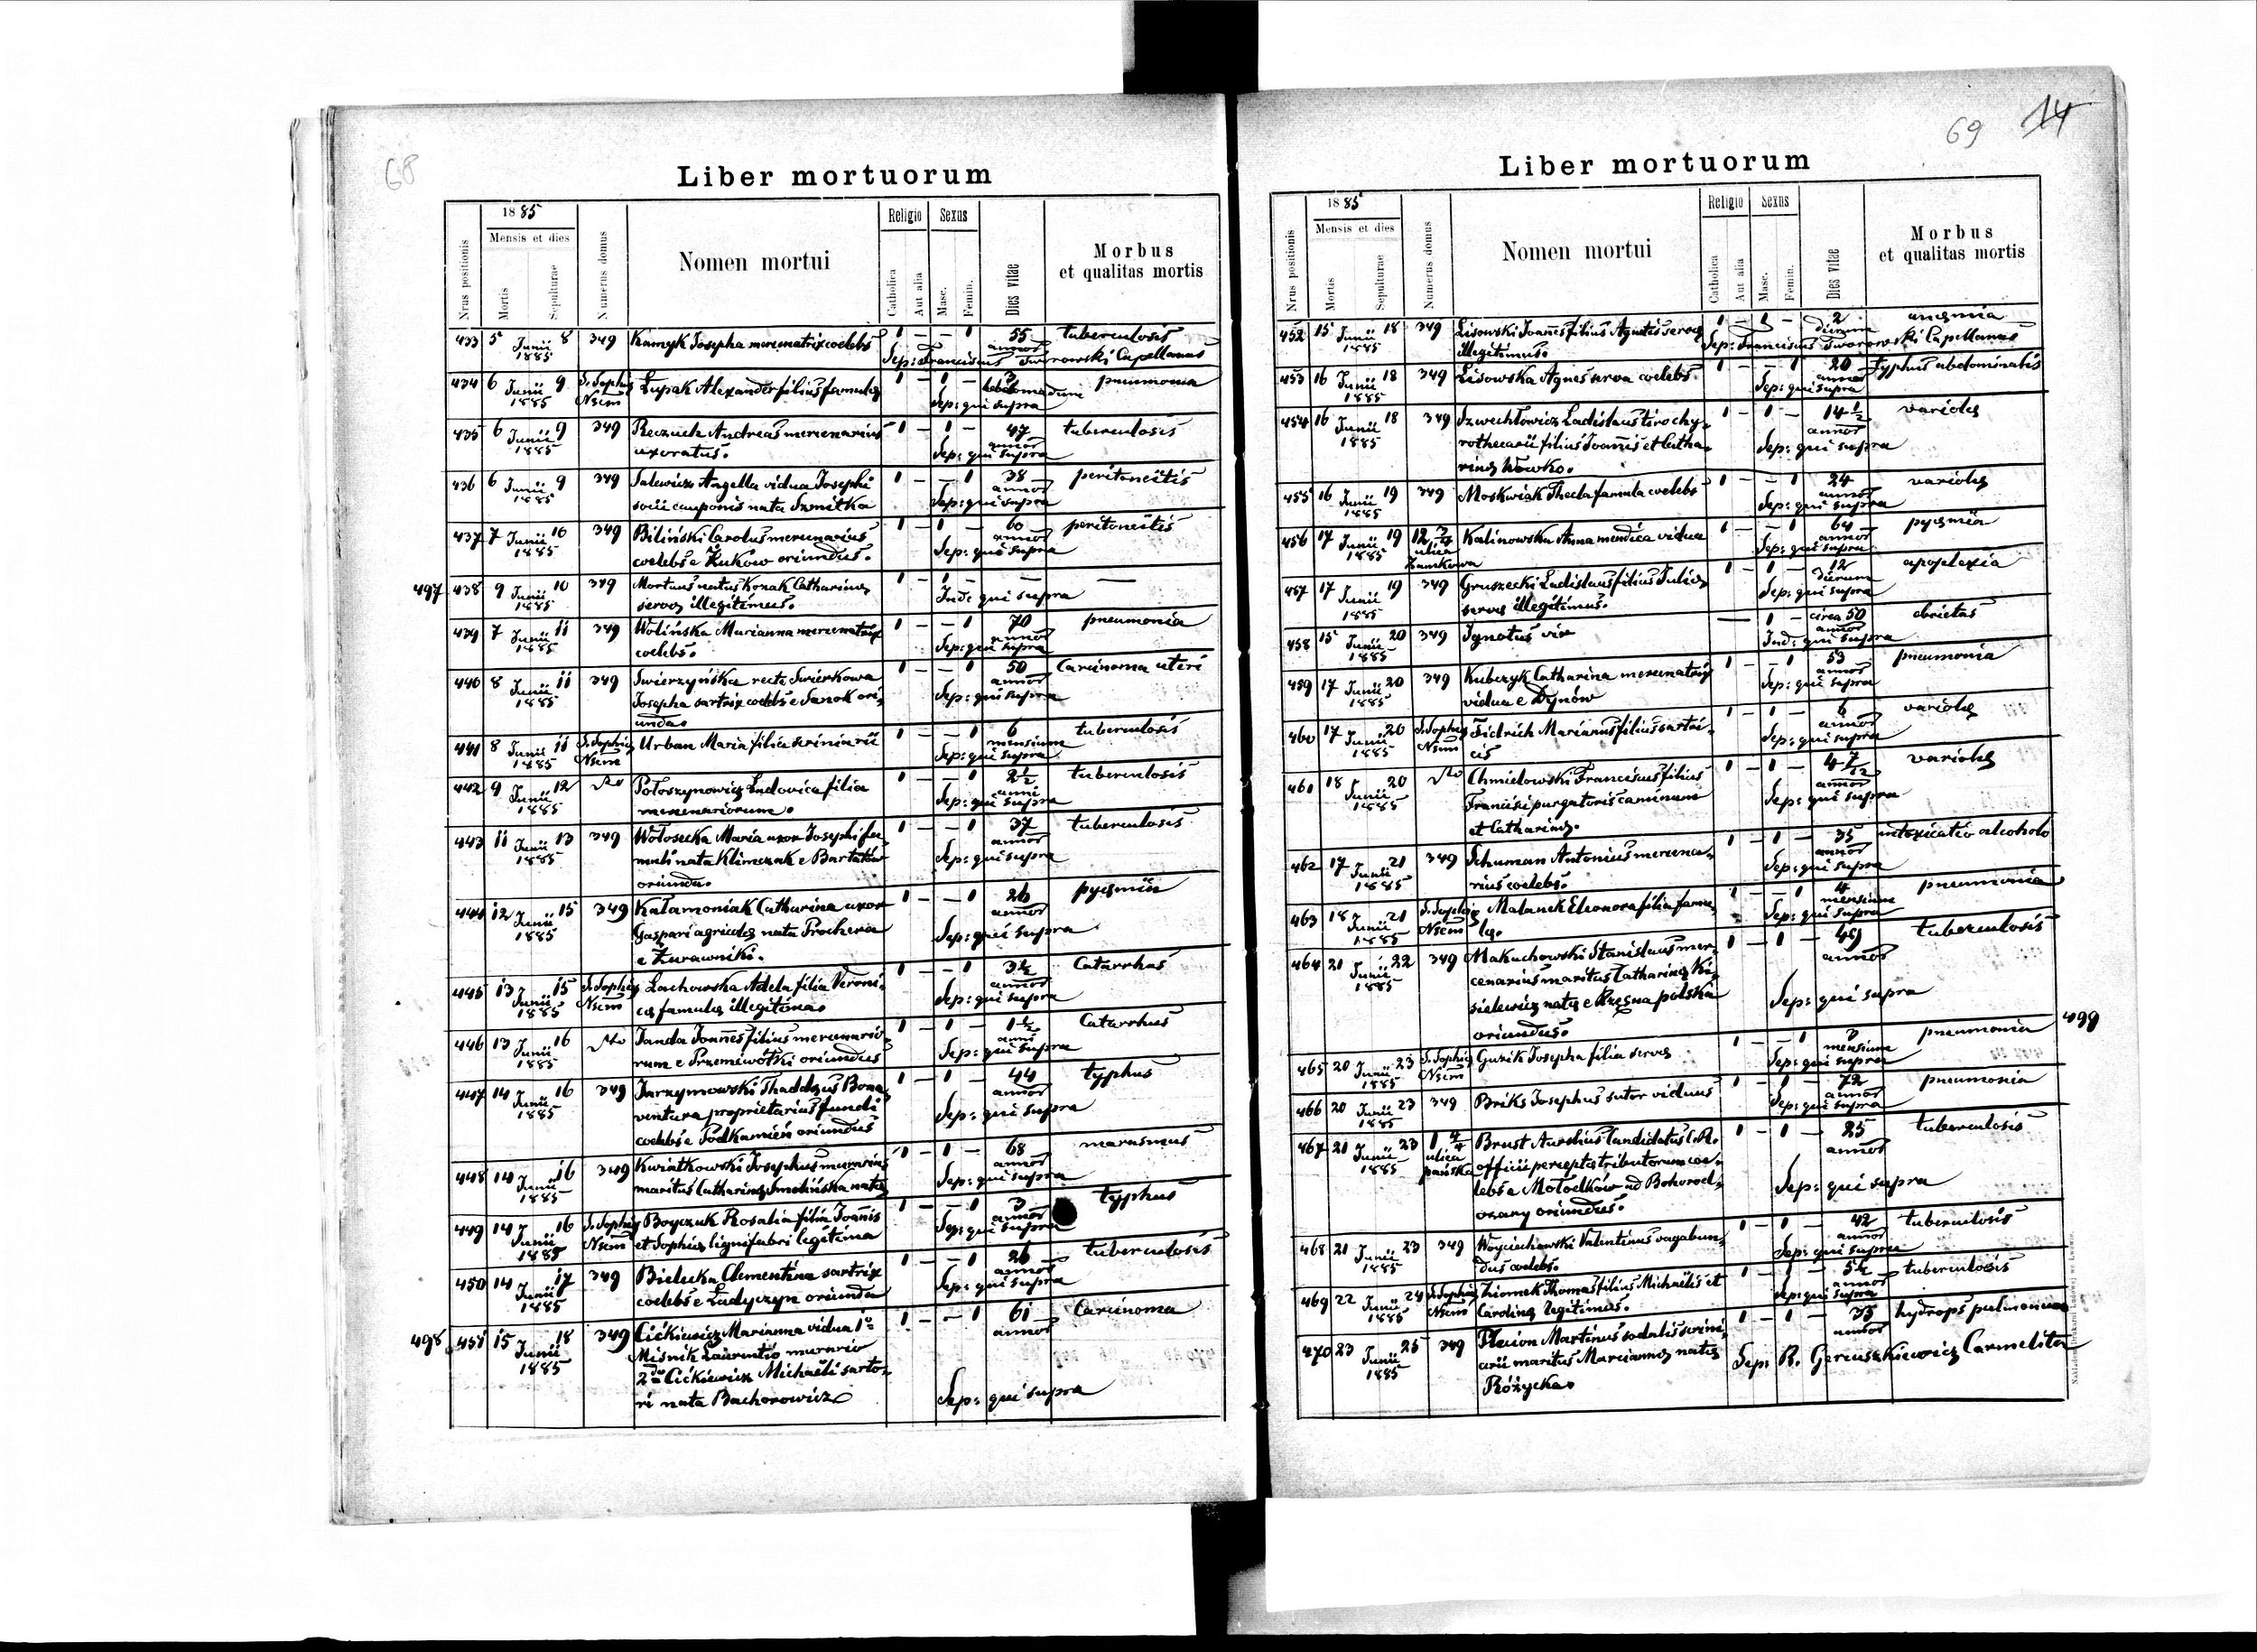 68
Liber mortuorum
Nrus positionis
1885
Mensis et dies
Mortis
Sepulturae
Numerus domus
Nomen mortui
Religio
Catholica
Aut alia
Sexus
Masc.
Femin.
Dies vitae
Morbus
et qualitas mortis
433 5 Junii 8 349 Kamyk Josepha mercenatrix coelebs 1 – – 1 55 tuberculosis
1885 annor
Sep: Franciscus Tworowski Capellanus
434 6 Junii 9 S. Sophię Łupak Alexander filius famulę 1 – 1 – 3 pneumonia
1885 Nsem hebdomadum
Sep: qui supra
435 6 Junii 9 349 Reczuch Andreas mercenarius 1 – 1 – 47 tuberculosis
1885 uxoratus. annor
Sep: qui supra
436 6 Junii 9 349 Salewicz Angella vidua Josephi 1 – – 1 38 peritoneitis
1885 socii cauponis nata Szmitka annor
Sep: qui supra
437 7 Junii 10 349 Biliński Carolus mercenarius 1 – 1 – 60 peritoneitis
1885 coelebs e Żuków oriundus. annor
Sep: qui supra
497 438 9 Junii 10 349 Mortuus natus Kozak Catharinę 1 – 1 – – –
1885 servę illegitimus. Ind: qui supra
439 7 Junii 11 349 Wolińska Marianna mercenatrix 1 – – 1 70 pneumonia
1885 coelebs. annor
Sep: qui supra
440 8 Junii 11 349 Swierzyńska recte Swierkowa 1 – – 1 50 Carcinoma uteri
1885 Josepha sartrix coelebs e Sanok ori- annor
unda. Sep: qui supra
441 8 Junii 11 S. Sophię Urban Maria filia scriniarii – – 1 6 tuberculosis
1885 Nsem mensium
Sep: qui supra
442 9 Junii 12 Ludovica filia 1 – – 1 2½ tuberculosis
1885 mercenariorum. anni
Sep: qui supra
443 11 Junii 13 349 Wołosecka Maria uxor Josephi fa- 1 – – 1 37 tuberculosis
1885 muli nata Klimczak e Bartatów annor
oriunda. Sep: qui supra
444 12 Junii 15 349 Kałamoniak Catharina uxor 1 – – 1 26 pyęmia
1885 Gaspari agricolę nata Prochera annor
e Żurawniki. Sep: qui supra
445 13 Junii 15 S. Sophię Lachowska Adela filia Veroni- 1 – – 1 3½ Catarrhus
1885 Nsem cę famulę illegitima. annor
Sep: qui supra
446 13 Junii 16 Janda Joannes filius mercenario- 1 – 1 – 1½ Catarrhus
1885 rum e oriundus anni
Sep: qui supra
447 14 Junii 16 349 Jarzymowski Thaddęus Bona- 1 – 1 – 44 typhus
1885 ventura proprietarius fundi annor
coelebs e Podkamień oriundus Sep: qui supra
448 14 Junii 16 349 Kwiatkowski Josephus murarius 1 – 1 – 68 marasmus
1885 maritus Catharinę Smolińska natę annor
Sep: qui supra
449 14 Junii 16 S. Sophię Boyczuk Rosalia filia Joannis 1 – – 1 3 typhus
1885 Nsem et Sophię lignifabri legitima annor
Sep: qui supra
450 14 Junii 17 349 Bielecka Clementina sartrix 1 – – 1 26 tuberculosis
1885 coelebs e Ładyczyn oriunda annor
Sep: qui supra
498 451 15 Junii 18 349 Cićkiewicz Marianna vidua 1º 1 – – 1 61 Carcinoma
1885 Miśnik Laurentio murario annor
2do Cićkiewicz Michaeli sarto-
ri nata Bachorowicz Sep: qui supra
69 14
Liber mortuorum
Nrus positionis
1885
Mensis et dies
Mortis
Sepulturae
Numerus domus
Nomen mortui
Religio
Catholica
Aut alia
Sexus
Masc.
Femin.
Dies vitae
Morbus
et qualitas mortis
452 15 Junii 18 349 Lisowski Joannes filius Agnetis servę 1 – 1 – 2 anęmia
1885 illegitimus. dierum
Sep: Franciscus Tworowski Capellanus
453 16 Junii 18 349 Lisowska Agnes serva coelebs. 1 – – 1 20 typhus abdominalis
1885 annor
Sep: qui supra
454 16 Junii 18 349 Szwechłowicz Ladislaus tiro chy- 1 – 1 – 14½ variolę
1885 rothecarii filius Joannis et Catha- annor
rinę Wowko. Sep: qui supra
455 16 Junii 19 349 Moskwiak Thecla famula coelebs 1 – – 1 24 variolę
1885 annor
Sep: qui supra
456 17 Junii 19 12 3/4 Kalinowska Anna mendica vidua 1 – – 1 64 pyęmia
1885 ulica annor
Zamkowa Sep: qui supra
457 17 Junii 19 349 Gruszecki Ladislaus filius Julię 1 – 1 – 12 apoplexia
1885 servę illegitimus. dierum
Sep: qui supra
458 15 Junii 20 349 Ignotus vir — 1 – circa 50 ebrietas
1885 annor
Ind: qui supra
459 17 Junii 20 349 Kubczyk Catharina mercenatrix 1 – – 1 53 pneumonia
1885 vidua e Dynów annor
Sep: qui supra
460 17 Junii 20 S. Sophię Fidrich Marianus filius sartri- 1 – 1 – 6 variolę
1885 Nsem cis annor
Sep: qui supra
461 18 Junii 20 Chmielowski Franciscus filius 1 – 1 – 4 7/12 variolę
1885 Francisci purgatoris caminum annor
et Catharinę. Sep: qui supra
462 17 Junii 21 349 Schuman Antonius mercena- 1 – 1 – 35 intoxicatio alcoholo
1885 rius coelebs. annor
Sep: qui supra
463 18 Junii 21 S. Sophię Malanek Eleonora filia famu- 1 – – 1 4 pneumonia
1885 Nsem lę. mensium
Sep: qui supra
464 21 Junii 22 349 Makuchowski Stanislaus mer- 1 – 1 – 49 tuberculosis
1885 cenarius maritus Catharinę Ki- annor
sielewicz natę e Rzęsna polska
oriundus. Sep: qui supra
465 20 Junii 23 S. Sophię Guzik Josepha filia servę 1 – – 1 3 pneumonia 499
1885 Nsem mensium
Sep: qui supra
466 20 Junii 23 349 Briks Josephus sutor viduus 1 – 1 – 72 pneumonia
1885 annor
Sep: qui supra
467 21 Junii 23 1 4/4 Brust Aurelius Candidatus C.R. 1 – 1 – 25 tuberculosis
1885 ulica officii percepta tributorum coe- annor
pańska lebs e Mołodków ad Bohorod-
czany oriundus. Sep: qui supra
468 21 Junii 23 349 Woyciechowski Valentinus vagabun- 1 – 1 – 42 tuberculosis
1885 dus coelebs. annor
Sep: qui supra
469 22 Junii 24 S. Sophię Ziomek Thomas filius Michaelis et 1 – 1 – 5½ tuberculosis
1885 Nsem Carolinę legitimus. annor
Sep: qui supra
470 23 Junii 25 349 Martinus sodalis scrini- 1 – 1 – 35 hydrops pulmonum
1885 arii maritus Mariannę natę annor
Różycka. Sep: R. Gereuszkiewicz Carmelita